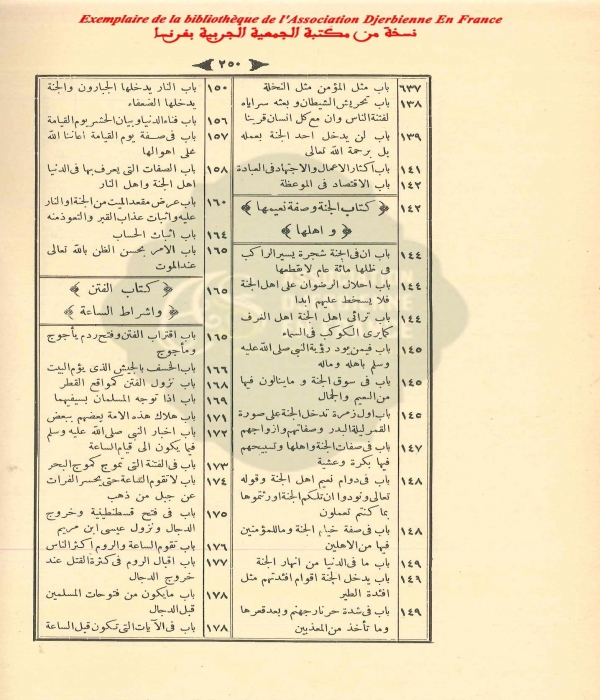 Exemplaire de la bibliothèque de l'Association Djerbienne En France
نسخة من مكتبة الجمعية الجربية بفرنسا
٢٥٠
٦٣٧ باب مثل المؤمن مثل النخلة
١٣٨ باب تحريش الشيطان و بعثه سراياه
لفتنة الناس وان مع كل انسان قرينا
١٣٩ باب لن يدخل احد الجنة بعمله
بل برحمة الله تعالى
١٤١ باب اكثار الاعمال والاجتهاد فى العبادة
١٤٢ باب الاقتصاد فى الموعظة
١٤٢ ﴿ كتاب الجنة وصفة نعيمها ﴾
﴿ و اهلها ﴾
١٤٤ باب ان فى الجنة شجرة يسير الراكب
فى ظلها مائة عام لا يقطعها
١٤٤ باب احلال الرضوان على اهل الجنة
فلا يسخط عليهم ابدا
١٤٤ باب ترائى اهل الجنة اهل الغرف
كما يرى الكوكب فى السماء
١٤٥ باب فيمن يود رؤية النبى صلى الله عليه
وسلم باهله وماله
١٤٥ باب فى سوق الجنة و ما ينالون فيها
من النعيم والجمال
١٤٥ باب اول زمرة تدخل الجنة على صورة
القمر ليلة البدر وصفاتهم وازواجهم
١٤٧ باب فى صفات الجنة واهلها وتسبيحهم
فيها بكرة وعشية
١٤٨ باب فى دوام نعيم اهل الجنة وقوله
تعالى ونودوا ان تلكم الجنة اورثتموها
بما كنتم تعملون
١٤٨ باب فى صفة خيام الجنة وما للمؤمنين
فيها من الاهلين
١٤٩ باب ما فى الدنيا من انهار الجنة
١٤٩ باب يدخل الجنة اقوام افئدتهم مثل
افئدة الطير
١٤٩ باب فى شدة حر نار جهنم و بعد قعرها
وما تأخذ من المعذبين
١٥٠ باب النار يدخلها الجبارون والجنة
يدخلها الضعفاء
١٥٦ باب فناء الدنيا وبيان الحشر يوم القيامة
١٥٧ باب فى صفة يوم القيامة اعاننا الله
على اهوالها
١٥٨ باب الصفات التى يعرف بها فى الدنيا
اهل الجنة واهل النار
١٦٠ باب عرض مقعد الميت من الجنة او النار
عليه واثبات عذاب القبر والتعوذ منه
١٦٤ باب اثبات الحساب
١٦٥ باب الامر بحسن الظن بالله تعالى
عند الموت
١٦٥ ﴿ كتاب الفتن ﴾
﴿ واشراط الساعة ﴾
١٦٥ باب اقتراب الفتن وفتح ردم يأجوج
ومأجوج
١٦٦ باب الخسف بالجيش الذى يؤم البيت
١٦٨ باب نزول الفتن كمواقع القطر
١٦٩ باب اذا توجه المسلمان بسيفيهما
١٧١ باب هلاك هذه الامة بعضهم ببعض
١٧٢ باب اخبار النبى صلى الله عليه وسلم
فيما يكون الى قيام الساعة
١٧٣ باب فى الفتنة التى تموج كموج البحر
١٧٤ باب لا تقوم الساعة حتى يحسر الفرات
عن جبل من ذهب
١٧٥ باب فى فتح قسطنطينية وخروج
الدجال ونزول عيسى ابن مريم
١٧٦ باب تقوم الساعة والروم اكثر الناس
١٧٧ باب اقبال الروم فى كثرة القتل عند
خروج الدجال
١٧٨ باب ما يكون من فتوحات المسلمين
قبل الدجال
١٧٨ باب فى الآيات التى تكون قبل الساعة